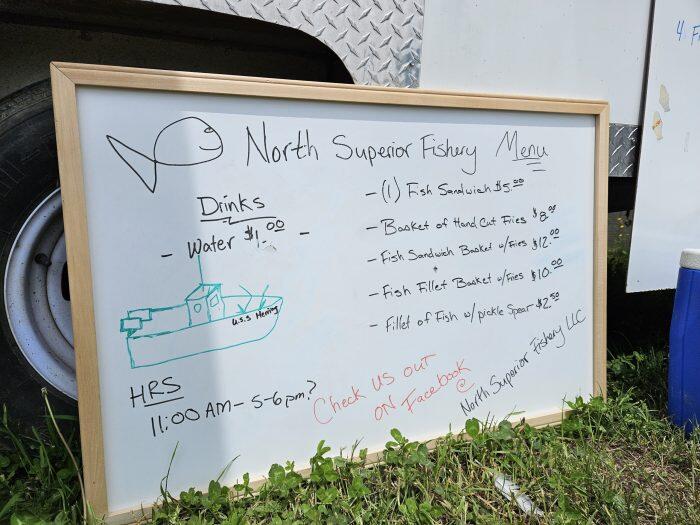 North Superior Fishery Menu
Drinks
- Water $1.00 -
- (1) Fish Sandwich $5.00
- Basket of Hand Cut Fries $8.00
- Fish Sandwich Basket w/Fries $12.00
- Fish Fillet Basket w/Fries $10.00
- Fillet of Fish w/ pickle Spear $2.50
U.S.S Herring
HRS
11:00 AM - 5-6pm?
Check us out
on Facebook
@
North Superior Fishery LLC